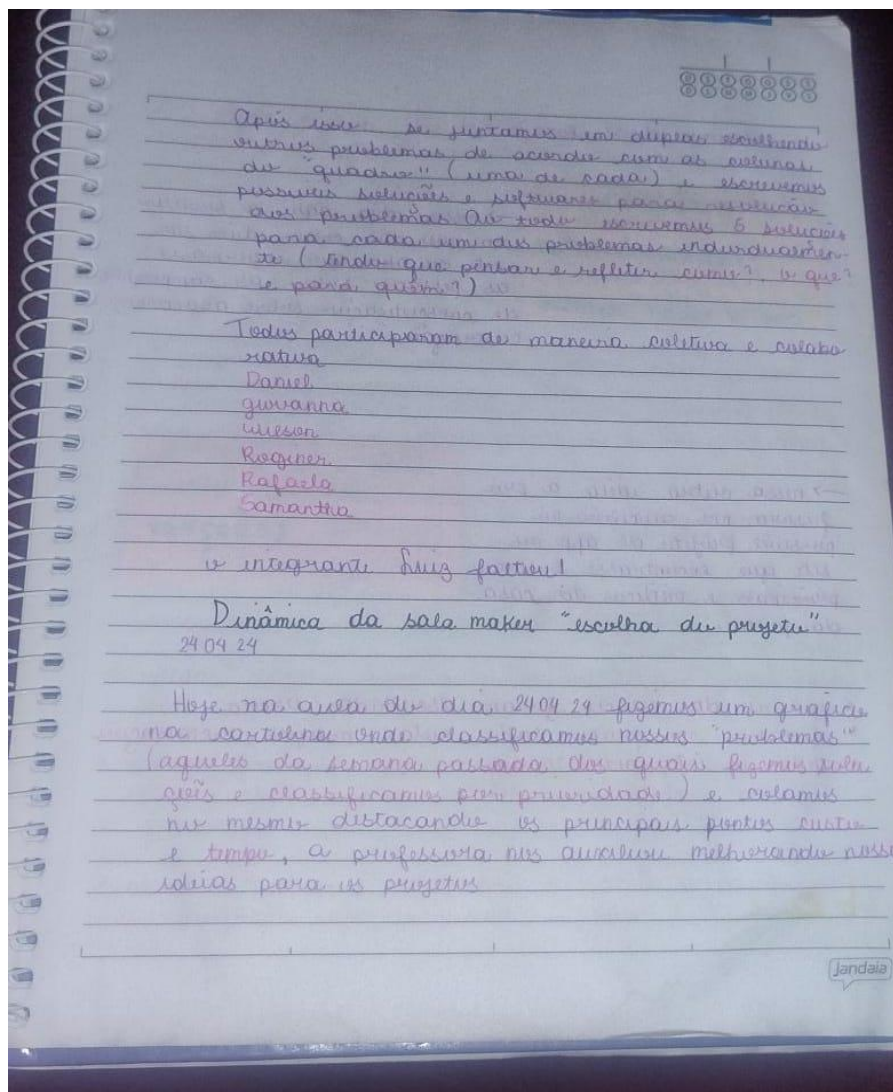 Após isso se juntamos em duplas escolhendo
outros problemas de acordo com as colunas
do "quadro" (uma de cada) e escrevemos
possíveis soluções e softwares para resolução
dos problemas Ao todo escrevemos 6 soluções
para cada um dos problemas individualmen-
te (tendo que pensar e refletir como?, o que?
e para quem?)
Todos participaram de maneira coletiva e colabo
rativa
Daniel
giovanna
Roginer
Rafaela
Samantha
o integrante Luiz faltou!
Dinâmica da sala maker "escolha do projeto"
24 04 24
Hoje na aula do dia 24 04 24 fizemos um gráfico
na cartolina onde classificamos nossos "problemas"
(aqueles da semana passada dos quais fizemos solu
ções e classificamos por prioridade) e colamos
no mesmo distacando os principais pontos custo
e tempo, a professora nos auxiliou melhorando noss
ideias para os projetos
Jandaia